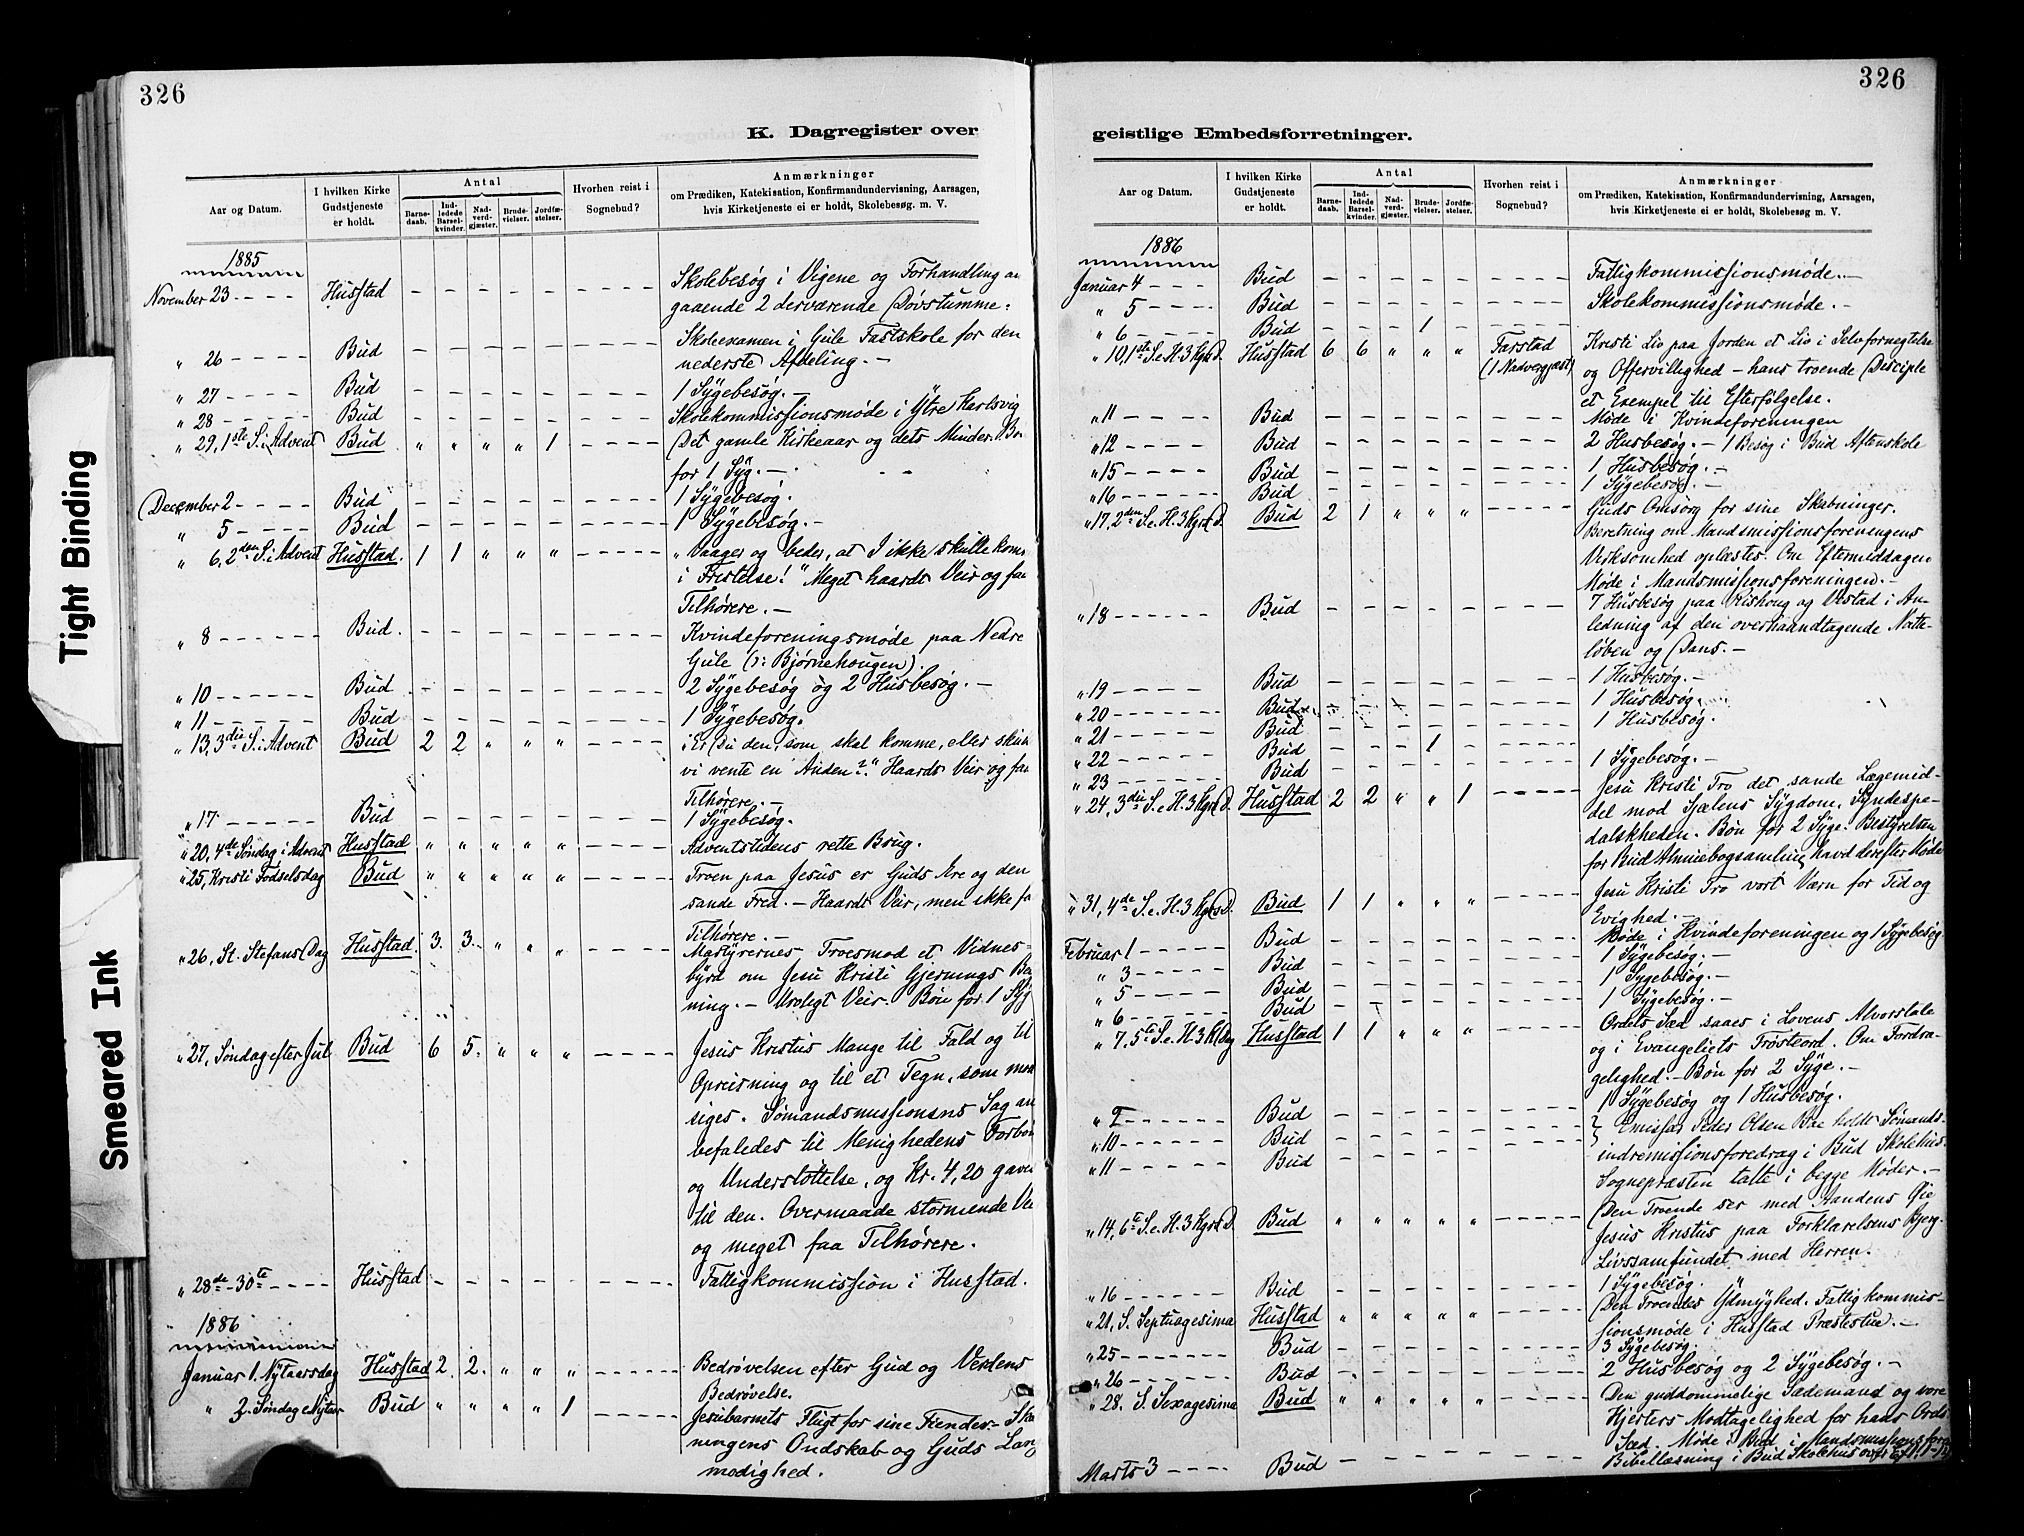 326
K. Dagregister over
Aar og Datum.
I hvilken Kirke Gudstjeneste er holdt.
Antal
Barnedaab.
Indledede Barselkvinder.
Nadverdgjæster.
Brudevielser.
Jordfæstelser.
Hvorhen reist i Sognebud?
Anmærkninger
om Prædiken, Katekisation, Konfirmandundervisning, Aarsagen,
hvis Kirketjeneste ei er holdt, Skolebesøg. m. V.
1885
November 23 - - - - Husstad - - - - - - - - - Skolebesøg i Vigene og Forhandling an
gaaende 2 derværende Døvstumme.
Skoleexamen i Gule Fastskole for den
" 26 - - - - Bud - - - - - - - - - nederste Afdeling. -
" 27 - - - - Bud - - - - - - - - - 1 Sygebesøg. -
" 28 - - - - Bud - - - - - - - - - Skolekommissionsmøde i Ytre Harlsvig
" 29, 1ste S. i Advent Bud " " " " 1 - - - - Det gamle Kirkeaar og dets Minder. Bø
for 1 Syg. -
December 2 - - - - Bud - - - - - - - - - 1 Sygebesøg.
" 5 - - - - Bud - - - - - - - - - 1 Sygebesøg. -
" 6, 2den S. i Advent Husstad. 1 1 " " " - - - - "Vaager og beder, at I ikke skulle kom
i Fristelse!" Meget haardt Veir og faa
Tilhørere. -
" 8 - - - - Bud. - - - - - - - - - Kvindeforeningsmøde paa Nedre
Gule (ɔ: Bjørnehougen).
" 10 - - - - Bud - - - - - - - - - 2 Sygebesøg og 2 Husbesøg. -
" 11 - - - - Bud - - - - - - - - - 1 Sygebesøg.
" 13, 3die S. i Advent Bud 2 2 " " " - - - - "Er Du den, som skal komme, eller skul
vi vente en Anden?" Haardt Veir og faa
Tilhørere. -
" 17 - - - - Bud - - - - - - - - - 1 Sygebesøg.
" 20, 4de Søndag i Advent Husstad " " " " " - - - - Adventstidens rette Brug.
" 25, Kristi Fødselsdag Bud " " " " " - - - - Troen paa Jesus er Guds Ære og den
sande Fred. - Haardt Veir, men ikke fa
Tilhørere. -
" 26, St. Stefans Dag Husstad. 3. 3. " " " - - - - Martyrernes Troesmod et Vidnes-
byrd om Jesu Kristi Gjernings Be
ning. - Uroligt Veir. Bøn for 1 Syg
" 27, Søndag efter Jul Bud 6 5. " " " - - - - Jesus Kristus Mange til Fald og til
Opreisning og til et Tegn, som mod
siges. Sømandsmissionens Sag an
befaledes til Menighedens Forbøn
og Understøttelse, og Kr. 4,20 gave
til den. Overmaade stormende Ve
og meget faa Tilhørere.
" 28de-30te - - - - Husstad - - - - - - - - - Fattigkommission i Husstad.
1886
Januar 1. Nytaarsdag Husstad 2. 2. " " " - - - - Bedrøvelsen efter Gud og Verdens
Bedrøvelse.
" 3. Søndag e Nytaar Bud " " " " 1 - - - - Jesubarnets Flugt for sine Fiender. - Ska
ningens Ondskab og Guds Lan
modighed.
Tight Binding
Smeared Ink
326
geistlige Embedsforretninger.
Aar og Datum.
I hvilken Kirke Gudstjeneste er holdt.
Antal
Barnedaab.
Indledede Barselkvinder.
Nadverdgjæster.
Brudevielser.
Jordfæstelser.
Hvorhen reist i Sognebud?
Anmærkninger
om Prædiken, Katekisation, Konfirmandundervisning, Aarsagen,
hvis Kirketjeneste ei er holdt, Skolebesøg m. V.
1886
Januar 4 - - - Bud - - - - - - - - - Fattigkommissionsmøde. -
" 5 - - - - Bud - - - - - - - - - Skolekommissionsmøde. -
" 6 - - - - Bud - - - 1 - - - - -
" 10, 1ste S. e. H. 3 Kgrs D. Husstad 6 6 " " " Farstad (1 Nadvergjæst) Kristi Liv paa Jorden et Liv i Selvfornegtelse
og Offervillighed - hans troende Disciple
et Exempel til Efterfølgelse.
" 11 - - - - Bud - - - - - - - - - Møde i Kvindeforeningen
" 12 - - - - Bud - - - - - - - - - 2 Husbesøg. - 1 Besøg i Bud Aftenskole
" 15 - - - - Bud - - - - - - - - - 1 Husbesøg. -
" 16 - - - - Bud - - - - - - - - - 1 Sygebesøg. -
" 17, 2den S. e. H. 3 Kgrs D. Bud 2 1 " " " - - - - Guds Omsorg for sine Skabninger.
Beretning om Mandsmissionsforeningens
Virksomhed oplæstes. Om Eftermiddagen
Møde i Mandsmissionsforeningen. -
" 18 - - - - Bud - - - - - - - - - 7 Husbesøg paa Rishoug og Vestad i An-
ledning af den overhaandtagende Natte-
løben og Dans. -
" 19 - - - - Bud - - - - - - - - - 1 Husbesøg. -
" 20 - - - - Bud - - - - - - - - - 1 Husbesøg.
" 21 - - - - Bud - - - - - - - - - 1 Husbesøg.
" 22 - - - - Bud - - - 1 - - - - -
" 23 - - - - Bud - - - - - - - - - 1 Sygebesøg. -
" 24, 3die S. e. H. 3 Kgrs D. Husstad 2 2 " " 1 - - - - Jesu Kristi Tro det sande Lægemid-
del mod Sjælens Sygdom, Syndespe-
dalskheden. Bøn for 2 Syge. Bestyrelsen
for Bud Almuebogsamling havd derefter Møde
" 31, 4de S. e. H. 3 Kgrs D. Bud 1 1 " " " - - - - Jesu Kristi Tro vort Værn for Tid og
Evighed. -
Februar 1 - - - - Bud - - - - - - - - - Møde i Kvindeforeningen og 1 Sygebesøg
" 3 - - - - Bud - - - - - - - - - 1 Sygebesøg. -
" 5 - - - - Bud - - - - - - - - - 1 Sygebesøg. -
" 6 - - - - Bud - - - - - - - - - 1 Sygebesøg. -
" 7, 5te S. e. H. 3 K. Dag Husstad 1 1 " " " - - - - Ordets Sæd saaes i Lovens Alvorstale
og i Evangeliets Trøsteord. Om Fordra-
gelighed. - Bøn for 2 Syge. -
" 9 - - - - Bud - - - - - - - - - 1 Sygebesøg og 1 Husbesøg.
" 10 - - - - Bud - - - - - - - - - } Emissær Peder Olsen Boe holdt Sømands-
" 11 - - - - Bud - - - - - - - - - indremissionsforedrag i Bud Skolehus-
Sognepræsten talte i begge Møder. -
" 14, 6te S. e. H. 3 Kgrs D. Bud " " " " " - - - - Den Troende ser med Aandens Øie
Jesus Kristus paa Forklarelsens Bjerg.
Livssamfundet med Herren.
" 16 - - - - Bud - - - - - - - - - 1 Sygebesøg.
" 21, S. Septuagesima Husstad " " " " " - - - - Den Troendes Ydmyghed. Fattigkommis-
sionsmøde i Husstad Præstestue. -
" 25 - - - - Bud - - - - - - - - - 3 Sygebesøg.
" 26 - - - - Bud - - - - - - - - - 2 Husbesøg og 2 Sygebesøg. -
" 28. S. Sexagesima Bud " " " " " - - - - Den guddommelige Sædemand og vore
Hjerters Modtagelighed for hans Ords
Sæd. Møde i Bud i Mandsmissionsfore
Marts 3 - - - - Bud - - - - - - - - - Bibellæsning i Bud Skolehus over